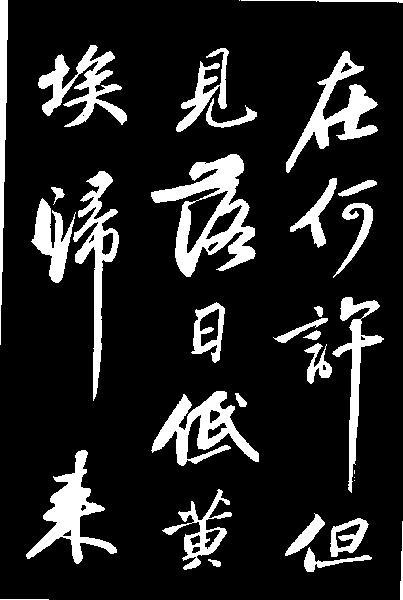 在何許但
見落日低黄
埃歸来